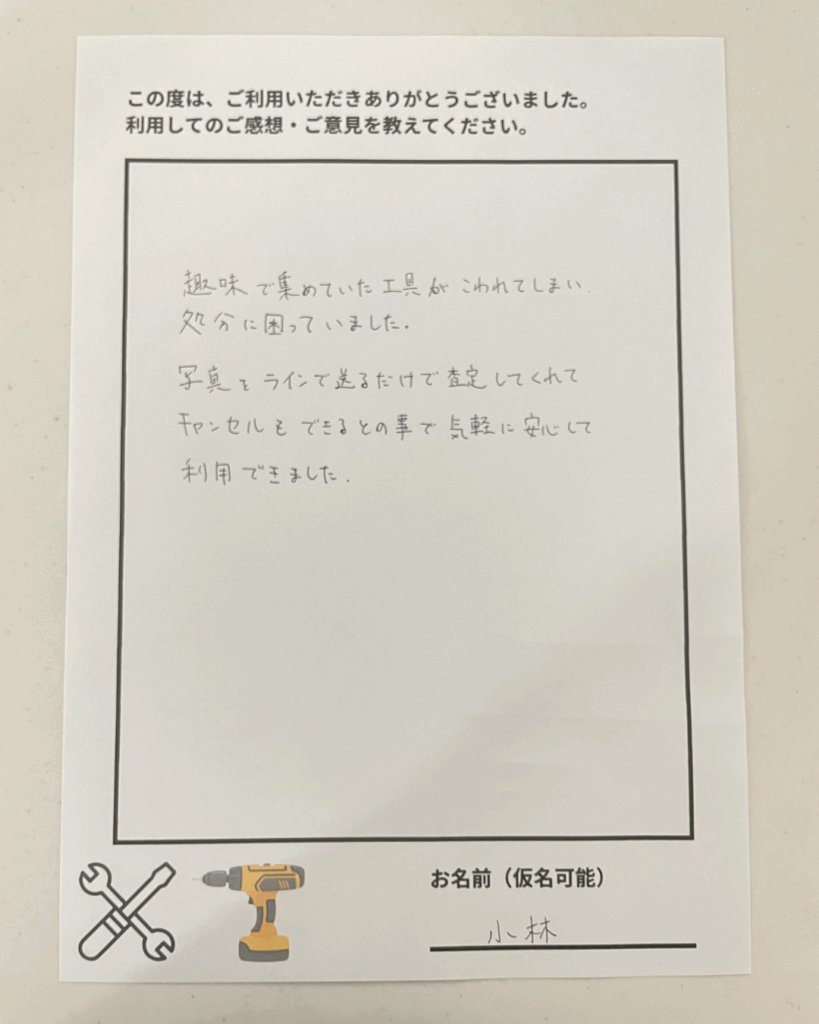 この度は、ご利用いただきありがとうございました。
利用してのご感想・ご意見を教えてください。
趣味で集めていた工具がこわれてしまい.
処分に困っていました.
写真をラインで送るだけで査定してくれて
キャンセルもできるとの事で気軽に安心して
利用できました.
お名前（仮名可能）
小林